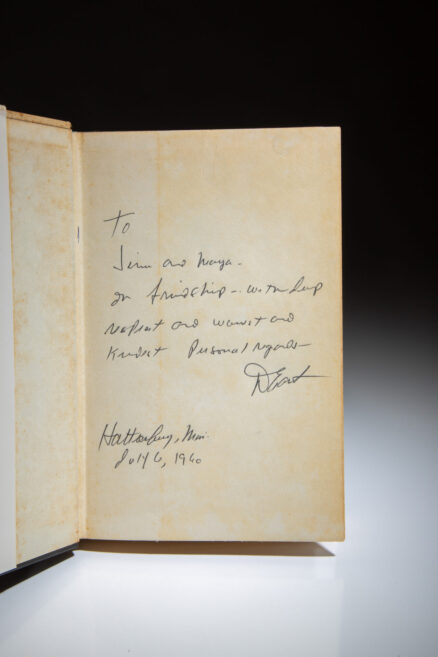 To
Jim and Maya -
In friendship - with deep
respect and warmest and
Kindest Personal regards -
P.D. East
Hattiesburg, Miss.
July 6, 1960